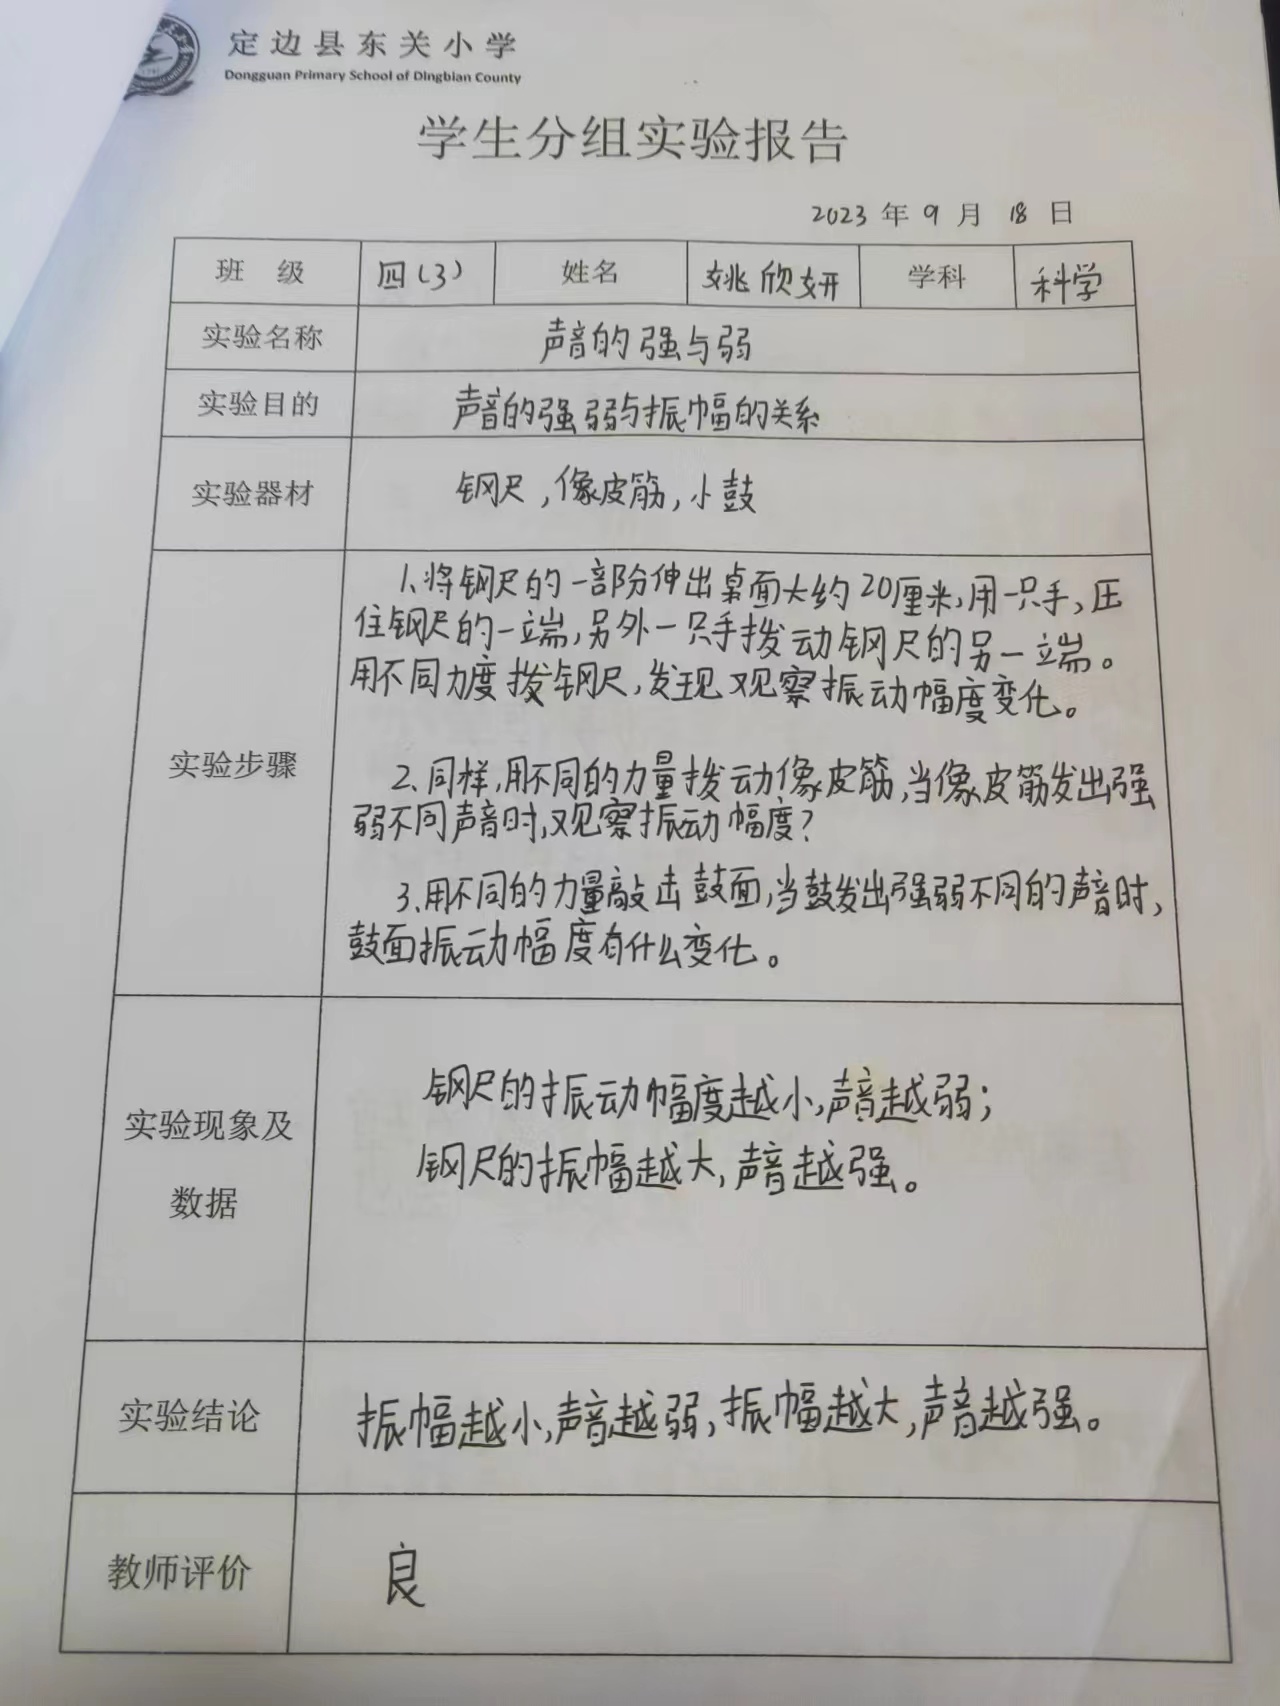 定边县东关小学
Dongguan Primary School of Dingbian County
学生分组实验报告
2023 年 9 月 18 日
班 级 四(3) 姓名 姚欣妍 学科 科学
实验名称 声音的强与弱
实验目的 声音的强弱与振幅的关系
实验器材 钢尺,像皮筋,小鼓
实验步骤
1.将钢尺的一部分伸出桌面大约20厘米,用一只手,压
住钢尺的一端,另外一只手拨动钢尺的另一端。
用不同力度拨钢尺,发现观察振动幅度变化。
2.同样,用不同的力量拨动像皮筋,当像皮筋发出强
弱不同声音时,观察振动幅度?
3.用不同的力量敲击鼓面,当鼓发出强弱不同的声音时,
鼓面振动幅度有什么变化。
实验现象及
数据
钢尺的振动幅度越小,声音越弱;
钢尺的振幅越大,声音越强。
实验结论 振幅越小,声音越弱,振幅越大,声音越强。
教师评价 良